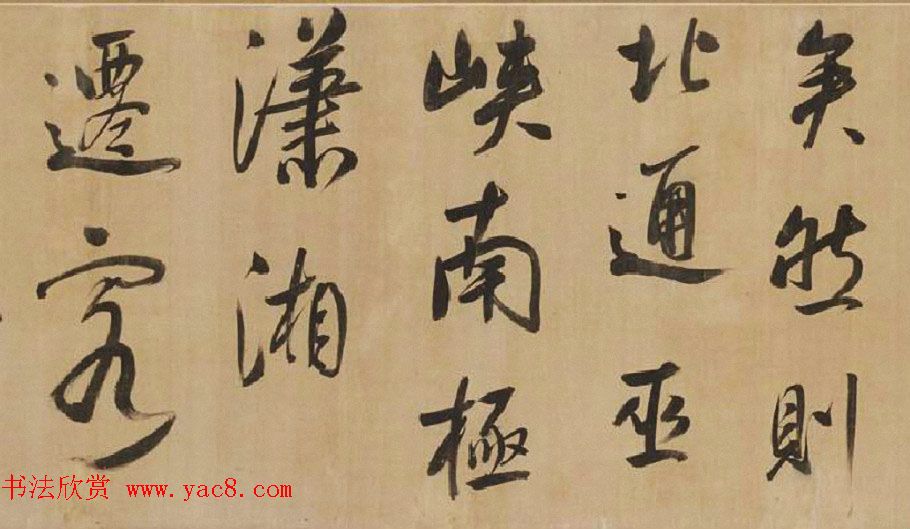 矣然則
北通巫
峽南極
瀟湘
遷客
书法欣赏 www.yac8.com